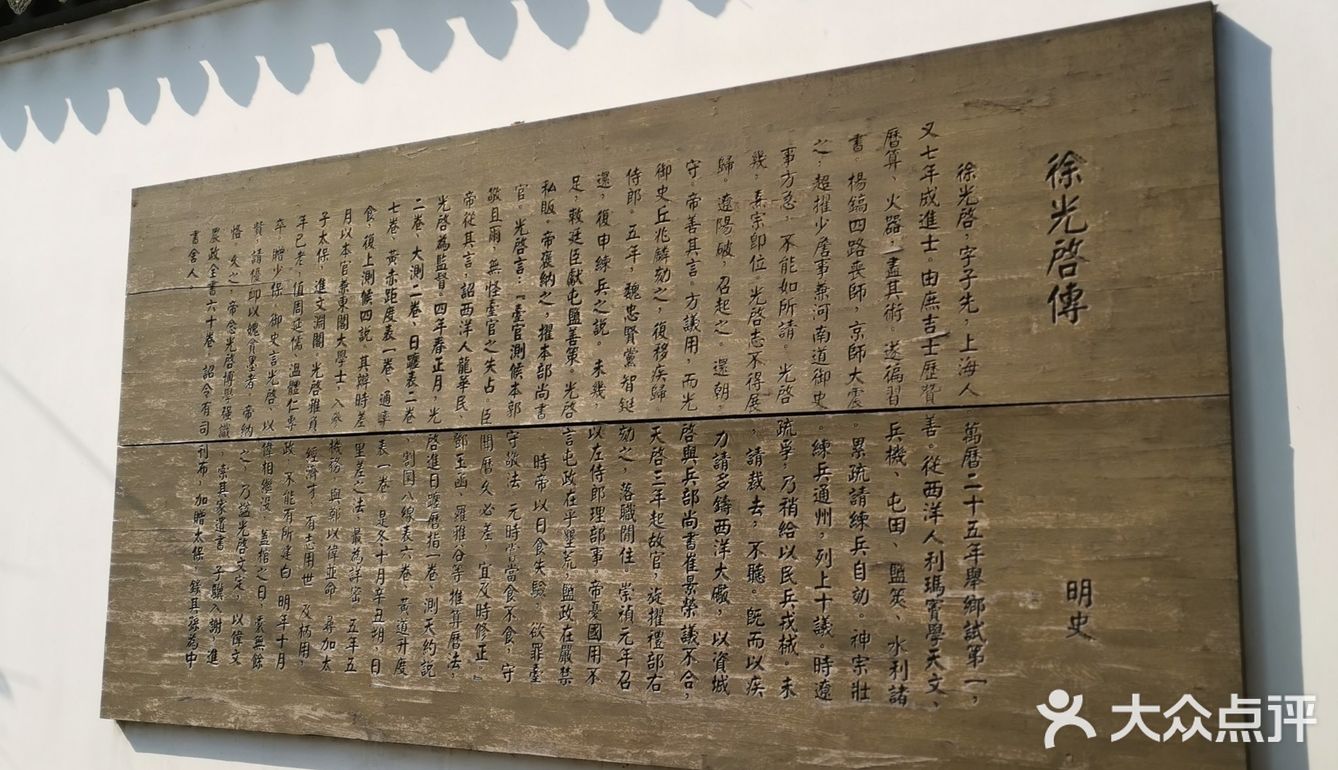 徐光啓傳
明史
徐光啓,字子先,上海人 萬曆二十五年舉鄉試第一,
又七年成進士。由庶吉士歷贊善。從西洋人利瑪竇學天文、
曆算、火器,盡其術。遂徧習兵機、屯田、鹽筴、水利諸
書。楊鎬四路喪師,京師大震。累疏請練兵自効。神宗壯
之,超擢少詹事兼河南道御史。練兵通州,列上十議。時遼
事方急,不能如所請。光啓疏爭,乃稍給以民兵戎械。未
幾,熹宗即位。光啓志不得展,請裁去,不聽。既而以疾
歸。遼陽破,召起之。還朝,力請多鑄西洋大礮,以資城
守。帝善其言。方議用,而光啓與兵部尚書崔景榮議不合,
御史丘兆麟劾之,復移疾歸。天啓三年起故官,旋擢禮部右
侍郎。五年,魏忠賢黨智鋌劾之,落職閒住 崇禎元年召
還,復申練兵之說。未幾,以左侍郎理部事。帝憂國用不
足,敕廷臣獻屯鹽善策。光啓言屯政在乎墾荒,鹽政在嚴禁
私販。帝褒納之,擢本部尚書 時帝以日食失驗,欲罪臺
官。光啓言:『臺官測候本郭守敬法 元時嘗當食不食,守
敬且爾,無怪臺官之失占 臣聞曆久必差,宜及時修正』
帝從其言,詔西洋人龍華民 鄧玉函、羅雅谷等推算曆法,
光啓為監督。四年春正月,光啓進日躔曆指一卷、測天約說
二卷、大測二卷、日躔表二卷、割圜八線表六卷、黃道升度
七卷、黃赤距度表一卷、通率表一卷 是冬十月辛丑朔,日
食,復上測候四說 其辯時差里差之法 最為詳密 五年五
月以本官兼東閣大學士,入參機務,與鄭以偉並命 尋加太
子太保,進文淵閣。光啓雅負經濟才 有志用世 及柄用,
年已老,值周延儒、溫體仁專政 不能有所建白 明年十月
卒 贈少保 御史言光啓、以偉相繼沒 蓋棺之日,囊無餘
貲,請優卹以媿貪墨者,帝納之,乃諡光啓文定,以偉文
恪 久之,帝念光啓博學強識,索其家遺書 子驥入謝 進
農政全書六十卷,詔令有司刊布,加贈太保 錄其孫為中
書舍人
大众点评